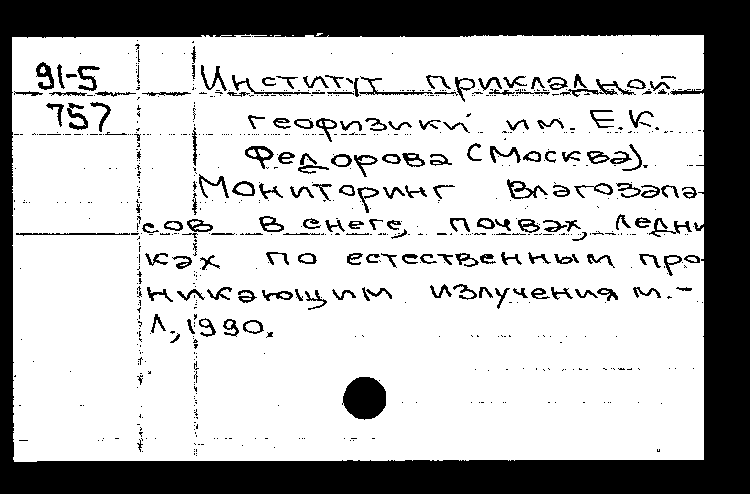 91-5 Институт прикладной
757 геофизики им. Е.К.
Федорова (Москва).
Мониторинг влагозапа-
сов в снеге, почвах, ледни
ках по естественным про-
никающим излучениям.-
Л., 1990.